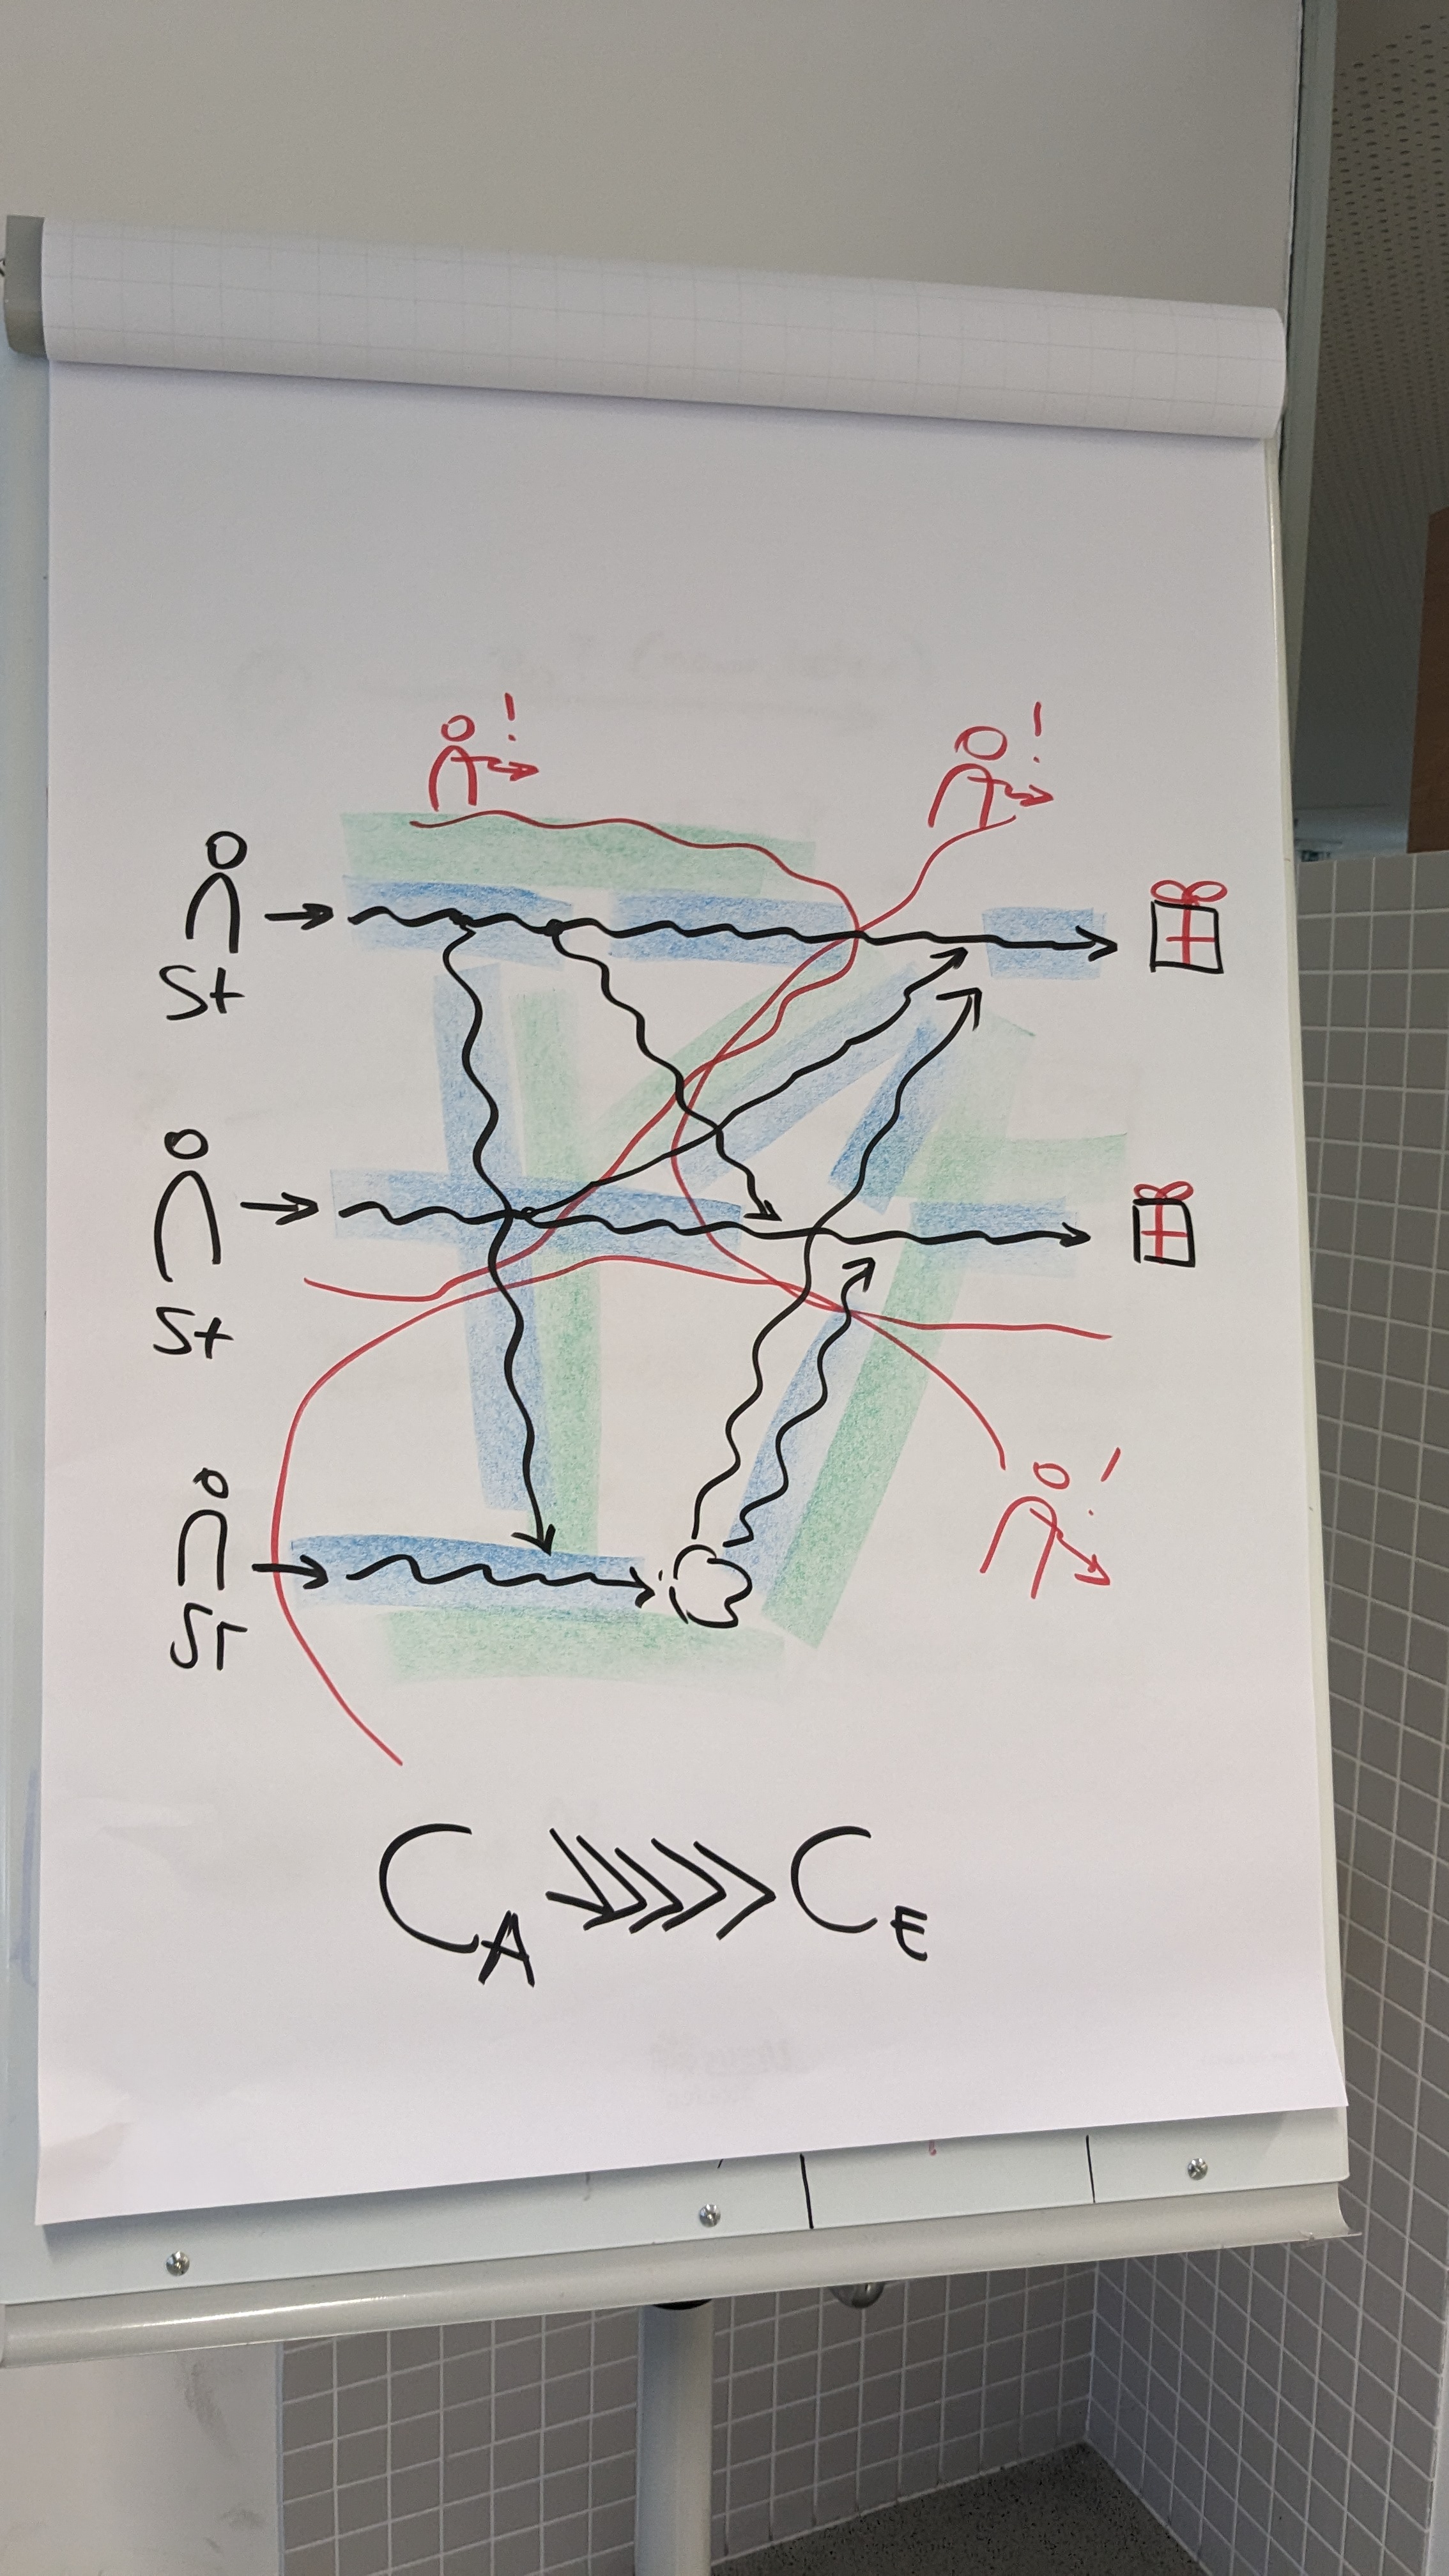 !
!
St
St
!
ST
C_A >>>>> C_E